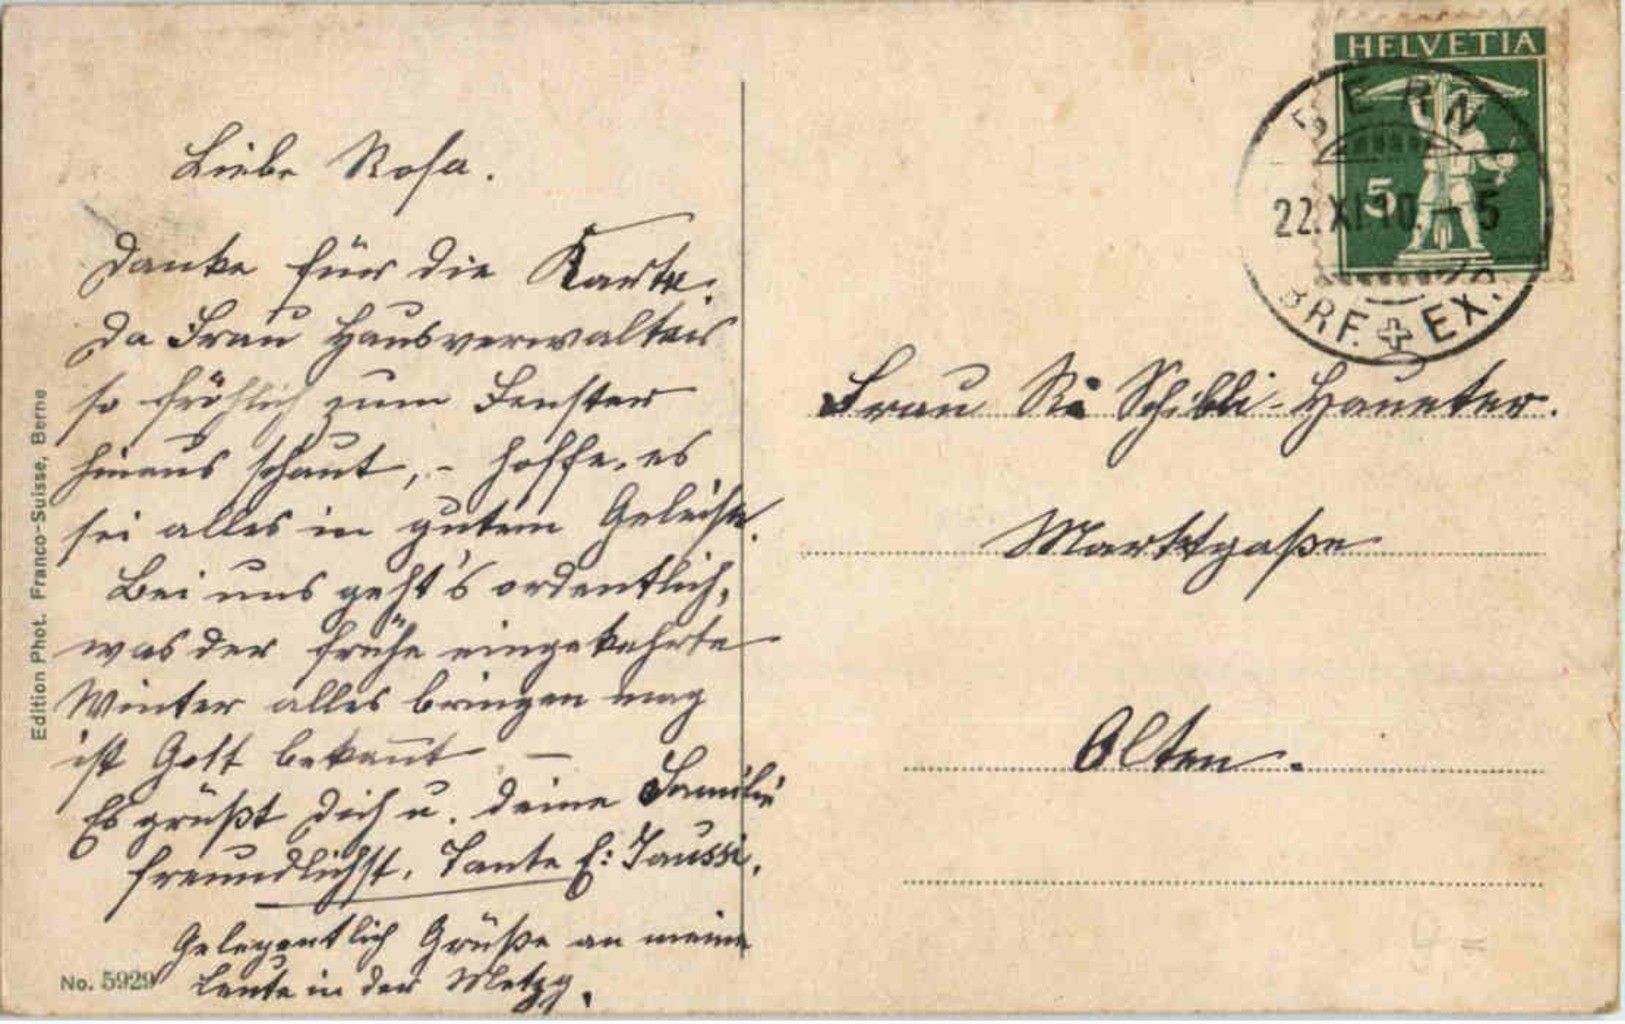 Liebe Rosa.
Danke für die Karte.
Da Frau Hausverwalters
so fröhlich zum Fenster
hinaus schaut, - hoffe, es
sei alles in gutem Geleise.
Bei uns geht's ordentlich,
was der frühe eingekehrte
Winter alles bringen mag
ist Gott bekannt –
Es grüßt Dich u. deine Familie
freundlichst, Tante E: Jaussi.
Gelegentlich Grüße an meine
Leute in der Metzg.
No. 5929
Edition Phot. Franco-Suisse, Berne
HELVETIA
5
BERN
22.XI.10. – 5
BRF. EX.
Frau R. Schibli-Haueter.
Marktgaße
Olten.